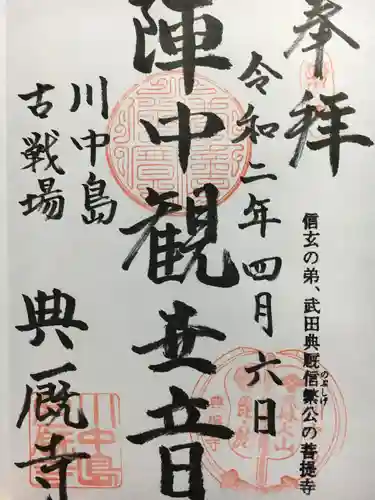 奉拝
令和二年四月六日
信玄の弟、武田典厩信繁公の菩提寺
のぶしげ
陣中観世音
川中島
古戦場
典厩寺
川中島
典厩寺